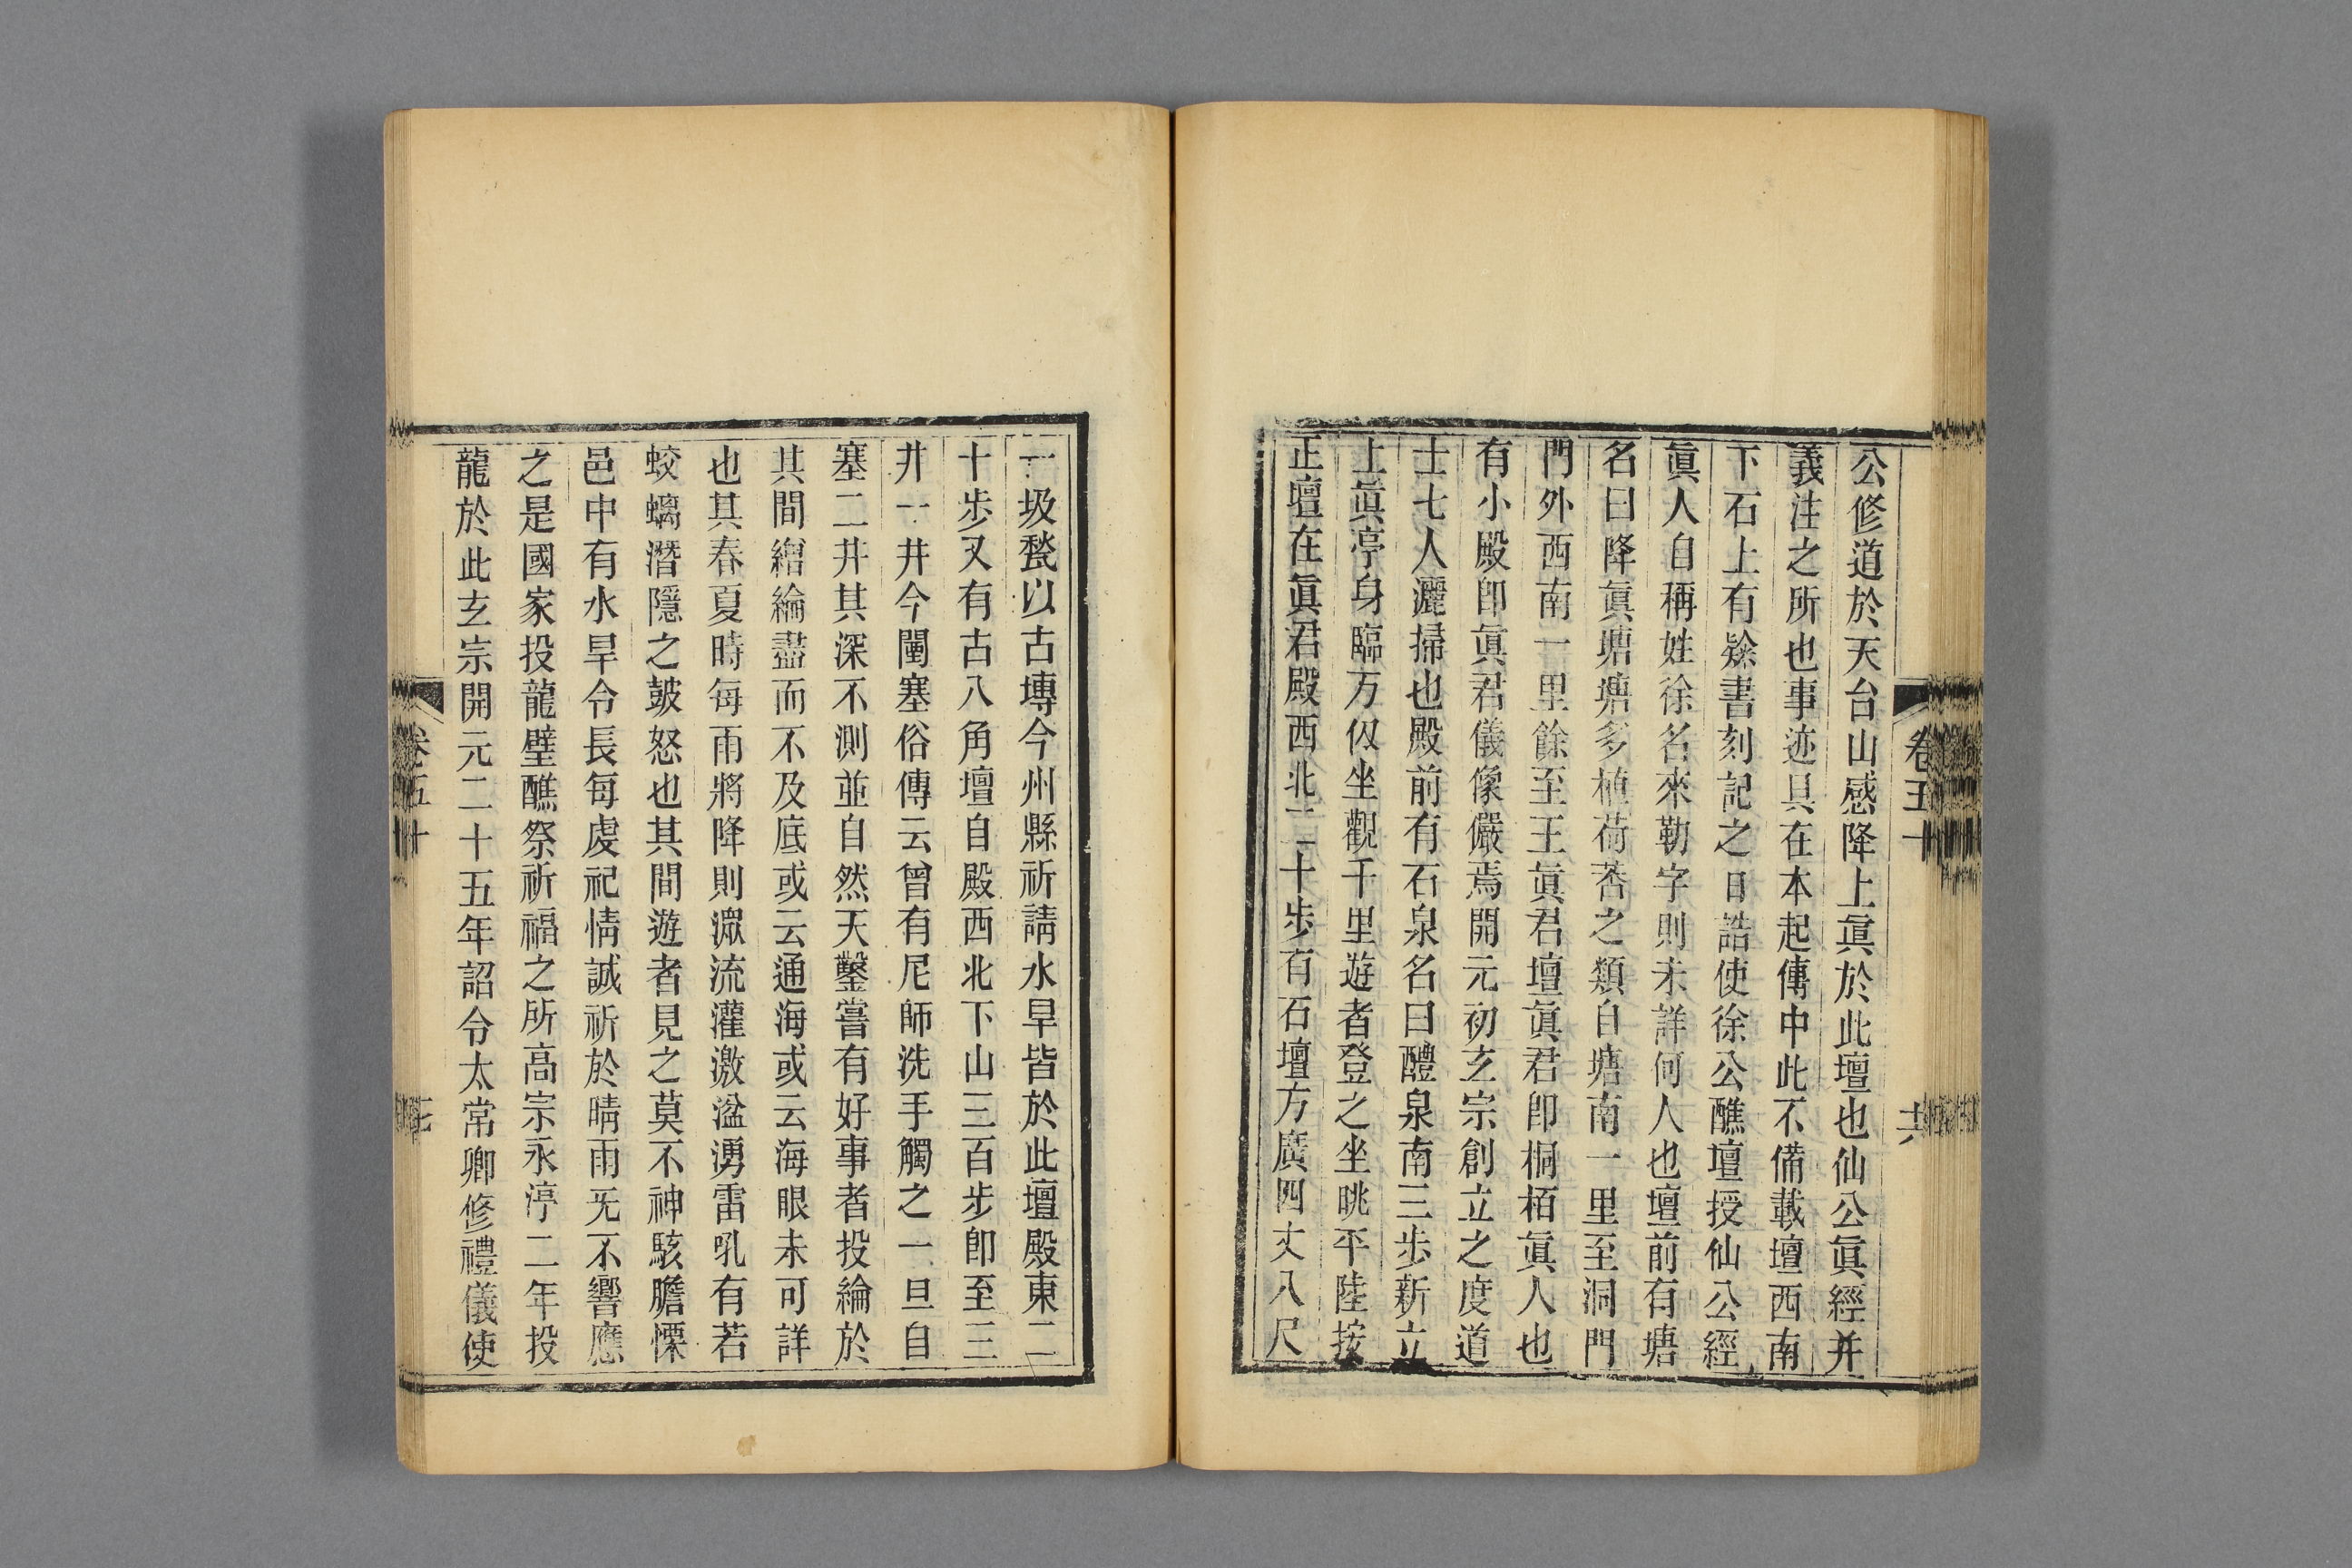 公修道於天台山感降上眞於此壇也仙公眞經并
義注之所也事迹具在本起傳中此不備載壇西南
下石上有𨽻書刻記之曰誥使徐公醮壇授仙公經
眞人自稱姓徐名來勒字則未詳何人也壇前有塘
名曰降眞塘塘多植荷菩之類自塘南一里至洞門
門外西南一里餘至王眞君壇眞君卽桐栢眞人也
有小殿卽眞君儀像儼焉開元初玄宗創立之度道
士七人灑掃也殿前有石泉名曰醴泉南三步新立
上眞亭身臨万仭坐觀千里遊者登之坐眺平陸按
正壇在眞君殿西北二十步有石壇方廣四丈八尺
卷五十
十六
一圾甃以古塼今州縣祈請水旱皆於此壇殿東二
十步又有古八角壇自殿西北下山三百步卽至三
井一井今闉塞俗傳云曾有尼師洗手觸之一旦自
塞二井其深不測並自然天鑿嘗有好事者投綸於
其間緡綸盡而不及底或云通海或云海眼未可詳
也其春夏時每雨將降則瀠流灌激湓湧雷吼有若
蛟螭潛隱之皷怒也其間遊者見之莫不神駭膽慄
邑中有水旱令長每虔祀情誠祈於晴雨旡不響應
之是國家投龍壁醮祭祈福之所高宗永淳二年投
龍於此玄宗開元二十五年詔令太常卿修禮儀使
卷五十